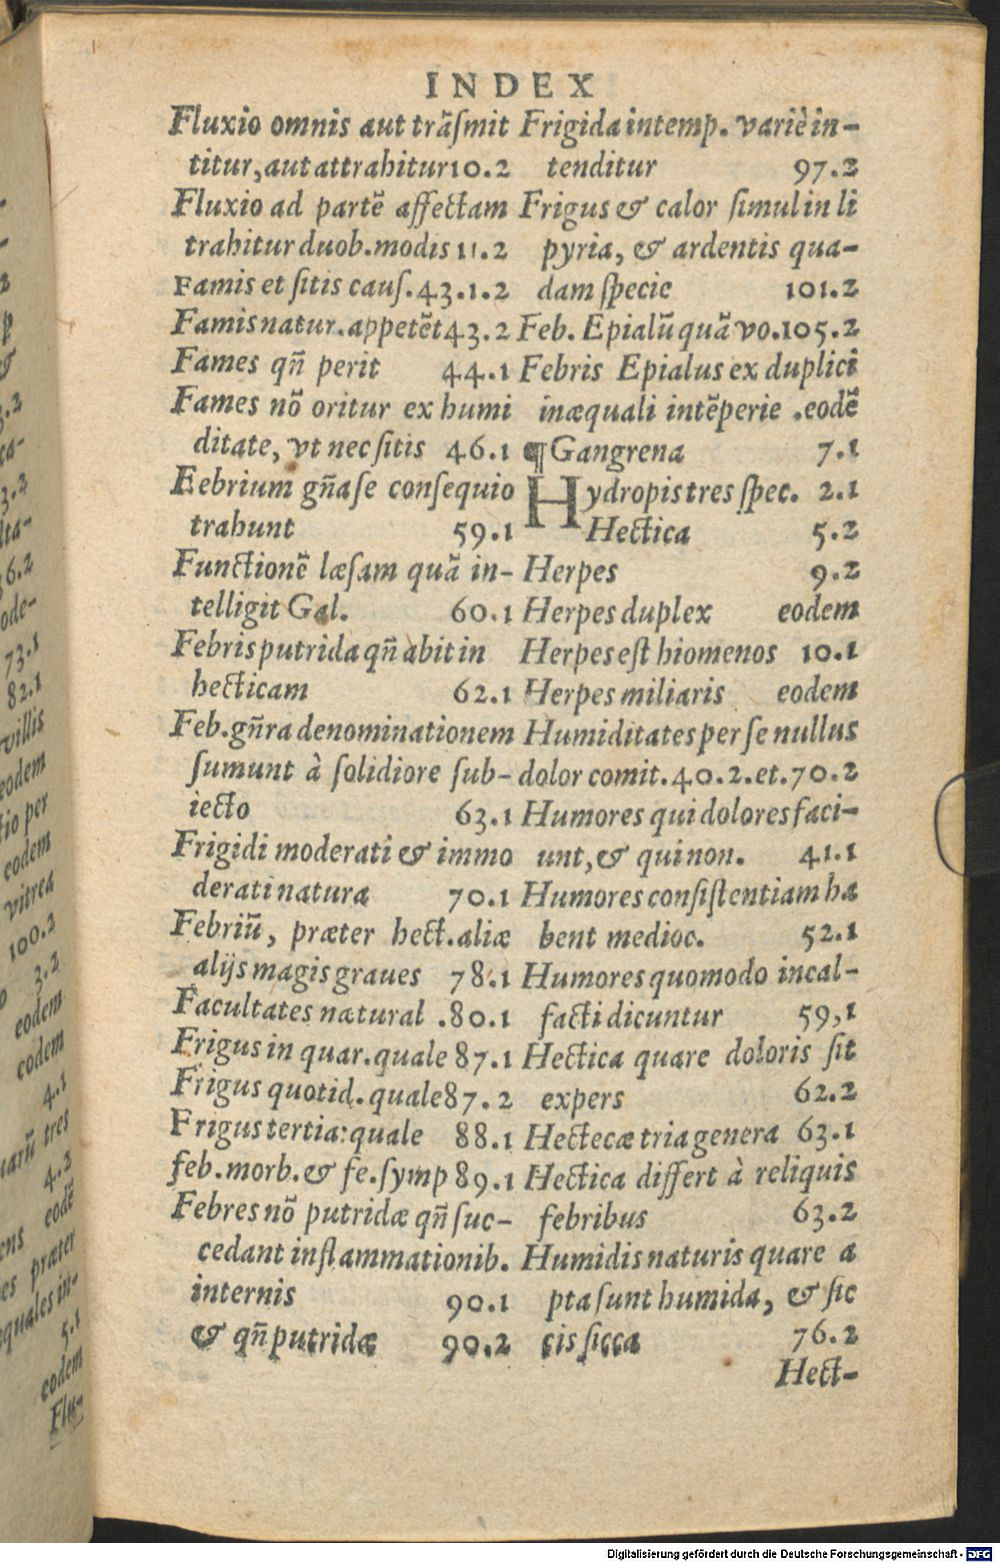 INDEX
Fluxio omnis aut trãſmit
titur, aut attrahitur 10.2
Fluxio ad partẽ affectam
trahitur duob. modis 11.2
Famis et ſitis cauſ. 43.1.2
Famis natur. appetẽt 43.2
Fames qñ perit 44.1
Fames nõ oritur ex humi
ditate, vt nec ſitis 46.1
Eebrium gñaſe conſequio
trahunt 59.1
Functionẽ læſam quã in-
telligit Gal. 60.1
Febris putrida qñ abit in
hecticam 62.1
Feb. gñra denominationem
ſumunt à ſolidiore ſub-
iecto 63.1
Frigidi moderati & immo
derati natura 70.1
Febriũ, præter hect. aliæ
alijs magis graues 78.1
Facultates natural .80.1
Frigus in quar. quale 87.1
Frigus quotid. quale 87.2
Frigus tertia: quale 88.1
feb. morb. & fe. ſymp 89.1
Febres nõ putridæ qñ ſuc-
cedant inflammationib.
internis 90.1
& qñ putridæ 90.2
Frigida intemp. variè in-
tenditur 97.2
Frigus & calor ſimul in li
pyria, & ardentis qua-
dam ſpecie 101.2
Feb. Epialũ quã vo. 105.2
Febris Epialus ex duplici
inæquali intẽperie .eodẽ
¶ Gangrena 7.1
Hydropis tres ſpec. 2.1
Hectica 5.2
Herpes 9.2
Herpes duplex eodem
Herpes eſt hiomenos 10.1
Herpes miliaris eodem
Humiditates per ſe nullus
dolor comit. 40.2. et. 70.2
Humores qui dolores faci-
unt, & qui non. 41.1
Humores conſiſtentiam ha
bent medioc. 52.1
Humores quomodo incal-
facti dicuntur 59,1
Hectica quare doloris ſit
expers 62.2
Hectecæ tria genera 63.1
Hectica differt à reliquis
febribus 63.2
Humidis naturis quare a
pta ſunt humida, & ſic
cis ſicca 76.2
Hect-
3.2
82.1
villis
eodem
tio per
eodem
vitrea
100.2
3.2
eodem
eodem
4.1
tres
4.2
eodẽ
præter
in-
5.1
eodem
Flu-
Digitalisierung gefördert durch die Deutsche Forschungsgemeinschaft - DFG